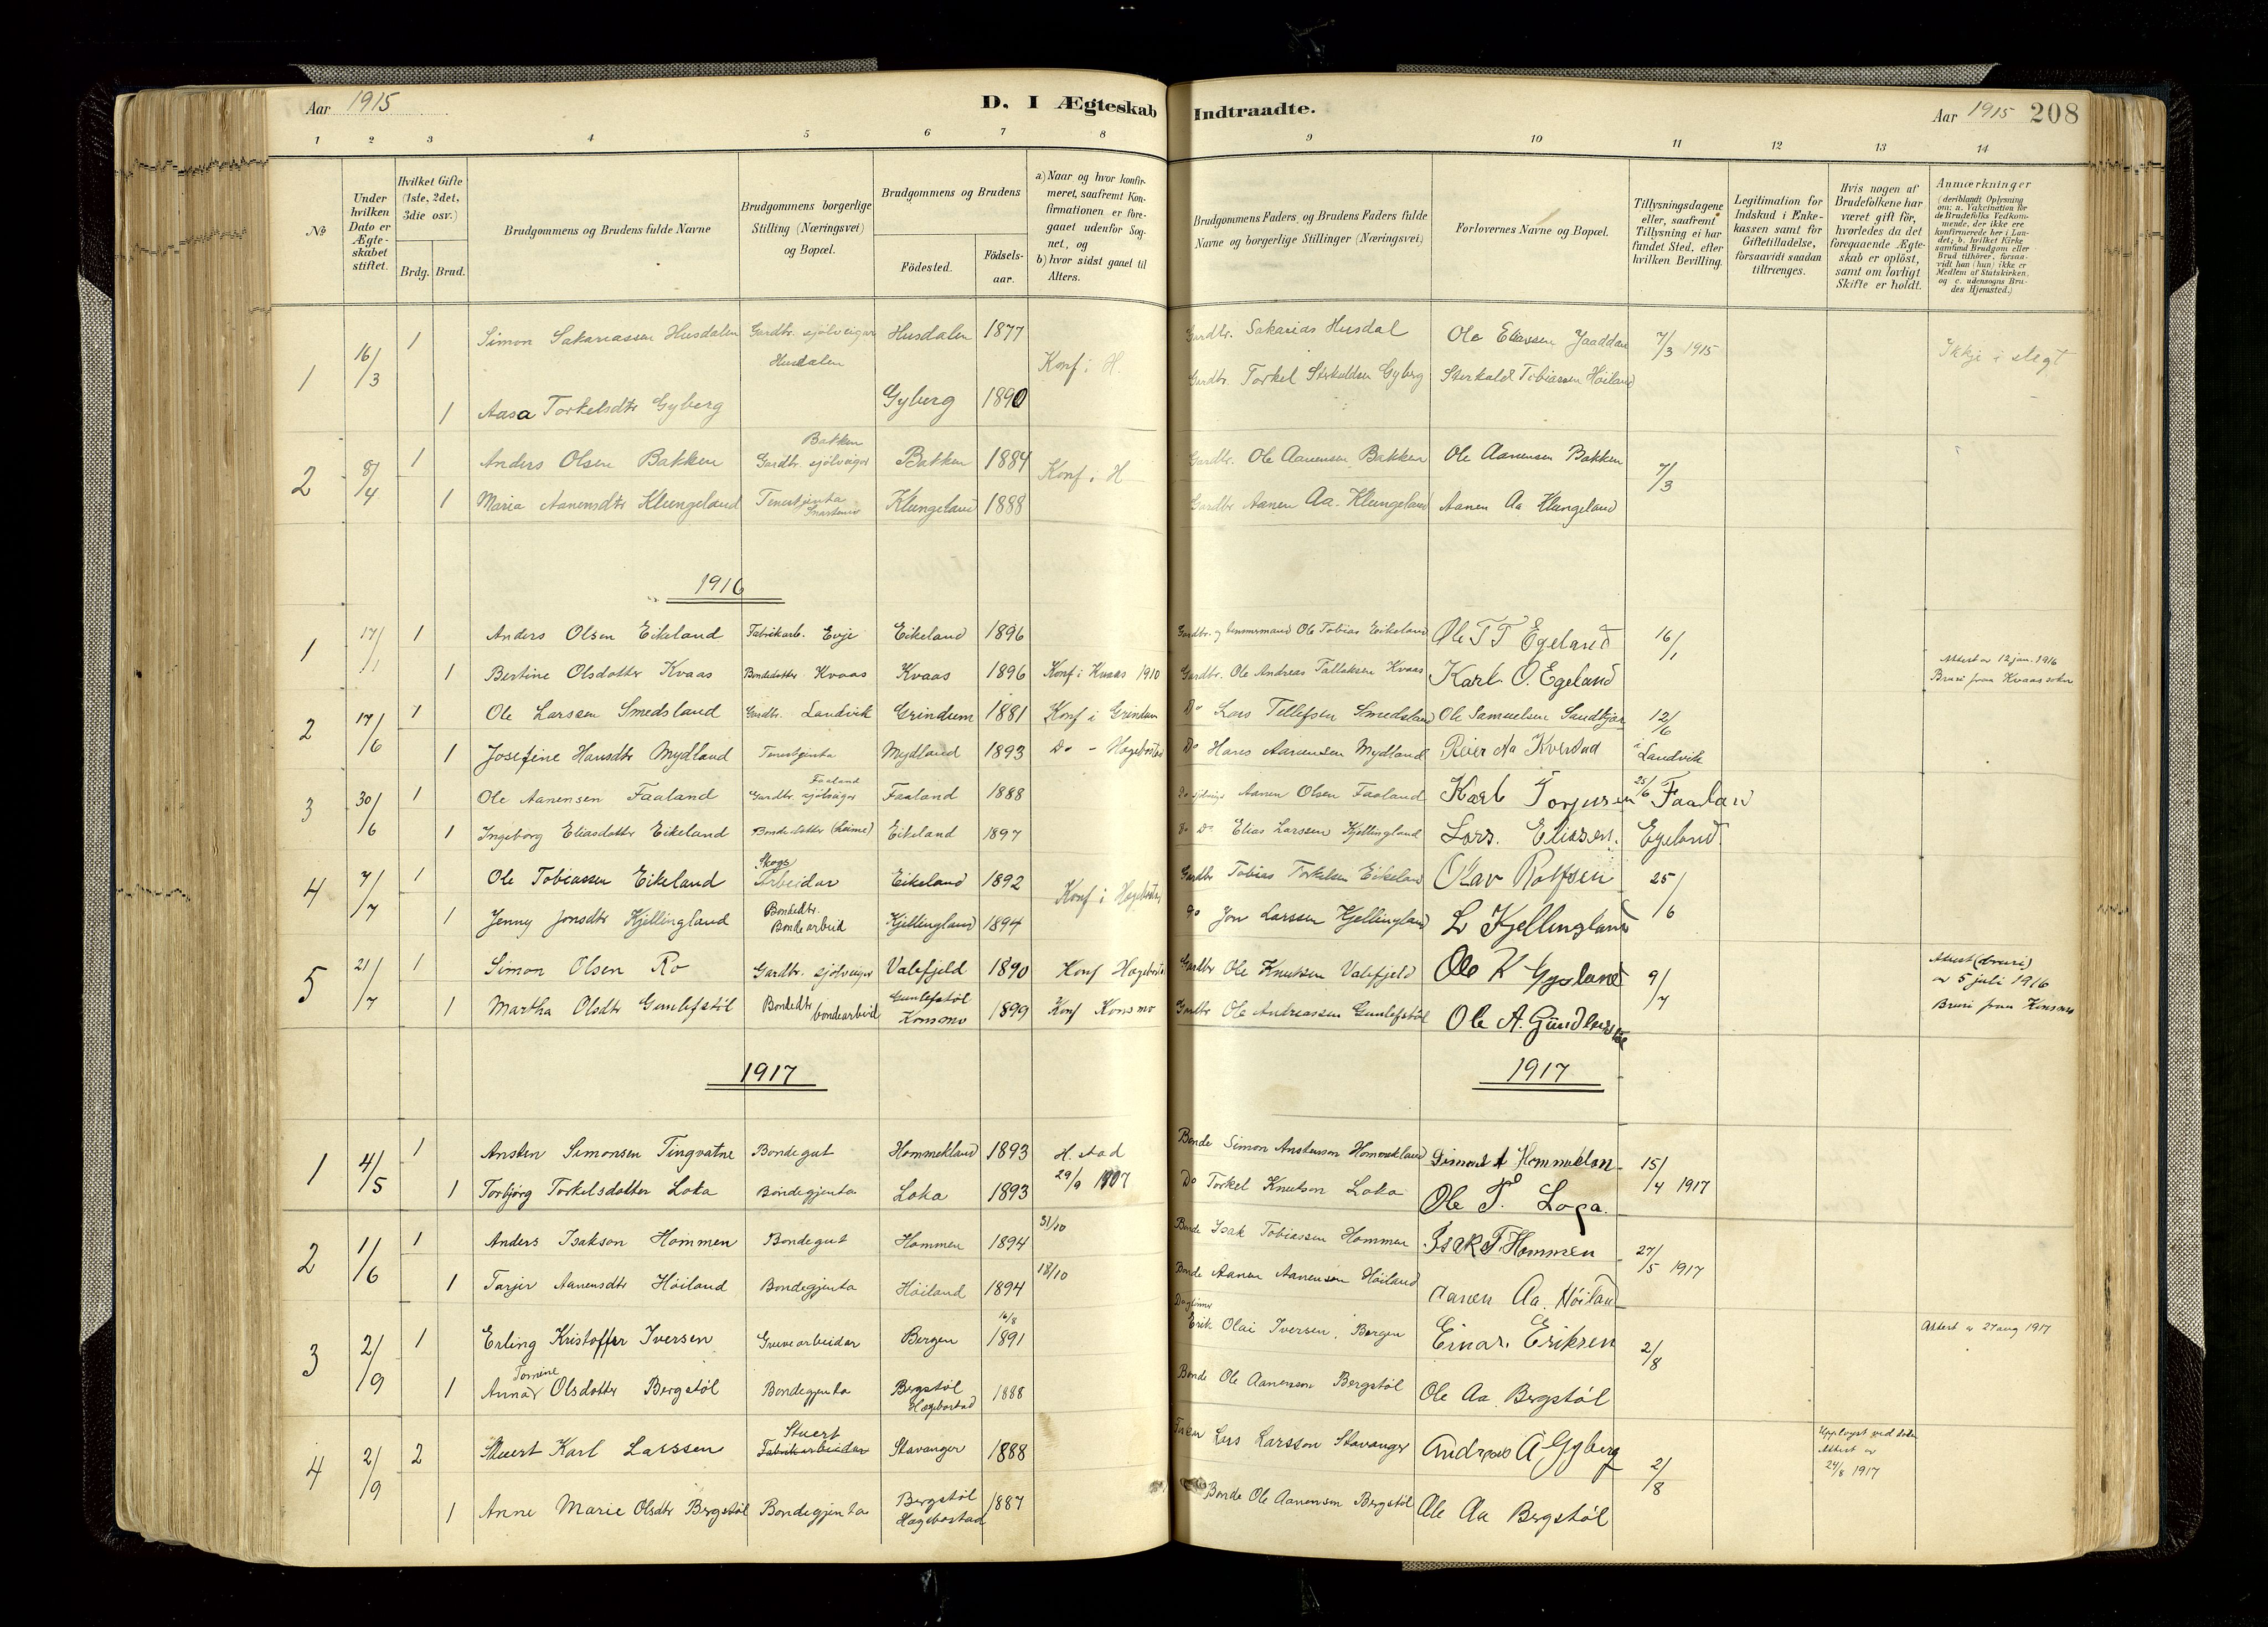 Aar 1915
D. I Ægteskab Indtraadte.
Aar 1915 208
1 2 3 4 5 6 7 8 9 10 11 12 13 14
No
Under hvilken Dato er Ægte-skabet stiftet.
Hvilket Gifte (1ste, 2det, 3die osv.)
Brdg. Brud.
Brudgommens og Brudens fulde Navne
Brudgommens borgerlige Stilling (Næringsvei) og Bopæl.
Brudgommens og Brudens
Födested. Födsels-aar.
a) Naar og hvor konfir-meret, saafremt Kon-firmationen er fore-gaaet udenfor Sog-net, og
b) hvor sidst gaaet til Alters.
Brudgommens Faders og Brudens Faders fulde Navne og borgerlige Stillinger (Næringsvei)
Forlovernes Navne og Bopæl.
Tillysningsdagene eller, saafremt Tillysning ei har fundet Sted, efter hvilken Bevilling.
Legitimation for Indskud i Enke-kassen samt for Giftetilladelse, forsaavidt saadan tiltrænges.
Hvis nogen af Brudefolkene har været gift för, hvorledes da det foregaaende Ægte-skab er oplöst, samt om lovligt Skifte er holdt.
Anmærkninger (deriblandt Oplysning om: a. Vakcination for de Brudefolks Vedkom-mende, der ikke ere konfirmerede her i Lan-det; b. hvilket Kirke-samfund Brudgom eller Brud tilhörer, forsaa-vidt han (hun) ikke er Medlem af Statskirken, og c. udensogns Bru-des Hjemsted.)
1 16/3 1 Simon Sakariassen Husdalen Gardbr. sjölveigar Husdalen Husdalen 1877 Konf i H. Gardbr. Sakarias Husdal Ole Eliassen Jaaddan 7/3 1915 Ikkje i slegt
1 Aasa Torkelsdtr Gyberg Gyberg 1890 Gardbr. Torkel Sterkaldsen Gyberg Sterkald Tobiassen Höiland
2 8/4 1 Anders Olsen Bakken Bakken Gardbr. sjölveigar Bakken 1884 Konf. i H Gardbr. Ole Aanensen Bakken Ole Aanensen Bakken 7/3
1 Maria Aanensdtr Klungeland Tenestjenta Snartemo Klungeland 1888 Gardbr Aanen Aa. Klungeland Aanen Aa Klungeland
1916
1 17/1 1 Anders Olsen Eikeland Fabrikarb. Evje Eikeland 1896 Gardbr. og tømmermand Ole Tobias Eikeland Ole T T Egeland 16/1
1 Bertine Olsdotter Kvaas Bondedotter Kvaas Kvaas 1896 Konf i Kvaas 1910 Gardbr. Ole Andreas Tallaksen Kvaas Karl O. Egeland Attest av 12 jan. 1916 Bruri fraa Kvaas sokn
2 17/6 1 Ole Larssen Smedsland Gardbr. Landvik Grindum 1881 Konf i Grindum Do Lars Tellefsen Smedsland Ole Samuelsen Sandkjær 12/6
1 Josefine Hansdtr Mydland Tenestjenta Mydland 1893 Do - Hægebostad Do Hans Aanensen Mydland Reier Aa Kverstad i Landvik
3 30/6 1 Ole Aanensen Faaland Faaland Gardbr. sjölveigar Faaland 1888 Do sjölveigr Aanen Olsen Faaland Karl Torjusen Faaland 25/6
1 Ingeborg Eliasdotter Eikeland Bondedotter (heime) Eikeland 1897 Do Do Elias Larssen Kjellingland Lars. Eliassen. Egeland
4 7/7 1 Ole Tobiassen Eikeland Skogs Arbeidar Eikeland 1892 Konf i Hægebostad Gardbr Tobias Torkelsen Eikeland Olav Rolfsen 25/6
1 Jenny Jonsdtr Kjellingland Bondedtr. Bondearbeid Kjellingland 1894 Do Jon Larssen Kjellingland L Kjellingland
5 21/7 1 Simon Olsen Ro Gardbr. sjölveigar Valefjeld 1890 Konf Hægebosta Gardbr Ole Knutsen Valefjeld Ole K Gysland 9/7 Attest (bruri) av 5 juli 1916
1 Martha Olsdtr Gunlefstöl Bondedtr bondearbeid Gunlefstöl Konsmo 1899 Konf Konsmo Gardbr Ole Andreassen Gunlefstöl Ole A. Gundlefsstöl Bruri fraa Konsmo
1917 1917
1 4/5 1 Ansten Simonsen Tingvatne Bondegut Hommekland 1893 H. stad Bonde Simon Anstenson Hommekland Simon A Hommeklan 15/4 1917
1 Torbjörg Torkelsdotter Loka Bondegjenta Loka 1893 29/9 1907 Do Torkel Knutson Loka Ole T. Loga.
2 1/6 1 Anders Isakson Hommen Bondegut Hommen 1894 31/10 Bonde Isak Tobiassen Hommen Isak T. Hommen 27/5 1917
1 Tarjer Aanensdtr Höiland Bondegjenta Höiland 1894 18/10 Bonde Aanen Aanensen Höiland Aanen Aa. Höiland
3 2/9 1 Erling Kristoffer Iversen Gruvearbeidar Bergen 16/8 1891 Dagleiner Erik Olai Iversen, Bergen Einar. Eriksen 2/8 Attest av 27 aug 1917
1 Anna Tomine Olsdotter Bergstöl Bondegjenta Bergstöl Hægebostad 1888 Bonde Ole Aanenson Bergstöl Ole Aa Bergstöl
4 2/9 2 Stuert Karl Larssen Stuert Fabrikarbeidar Stavanger 1888 Lars Larsson Stavanger Andreas A Gyberg 2/8 Upplyst ved Attest av 24/8 1917
1 Anne Marie Olsdtr Bergstöl Bondegjenta Bergstöl Hægebostad 1887 Bonde Ole Aanenson Bergstöl Ole Aa Bergstöl